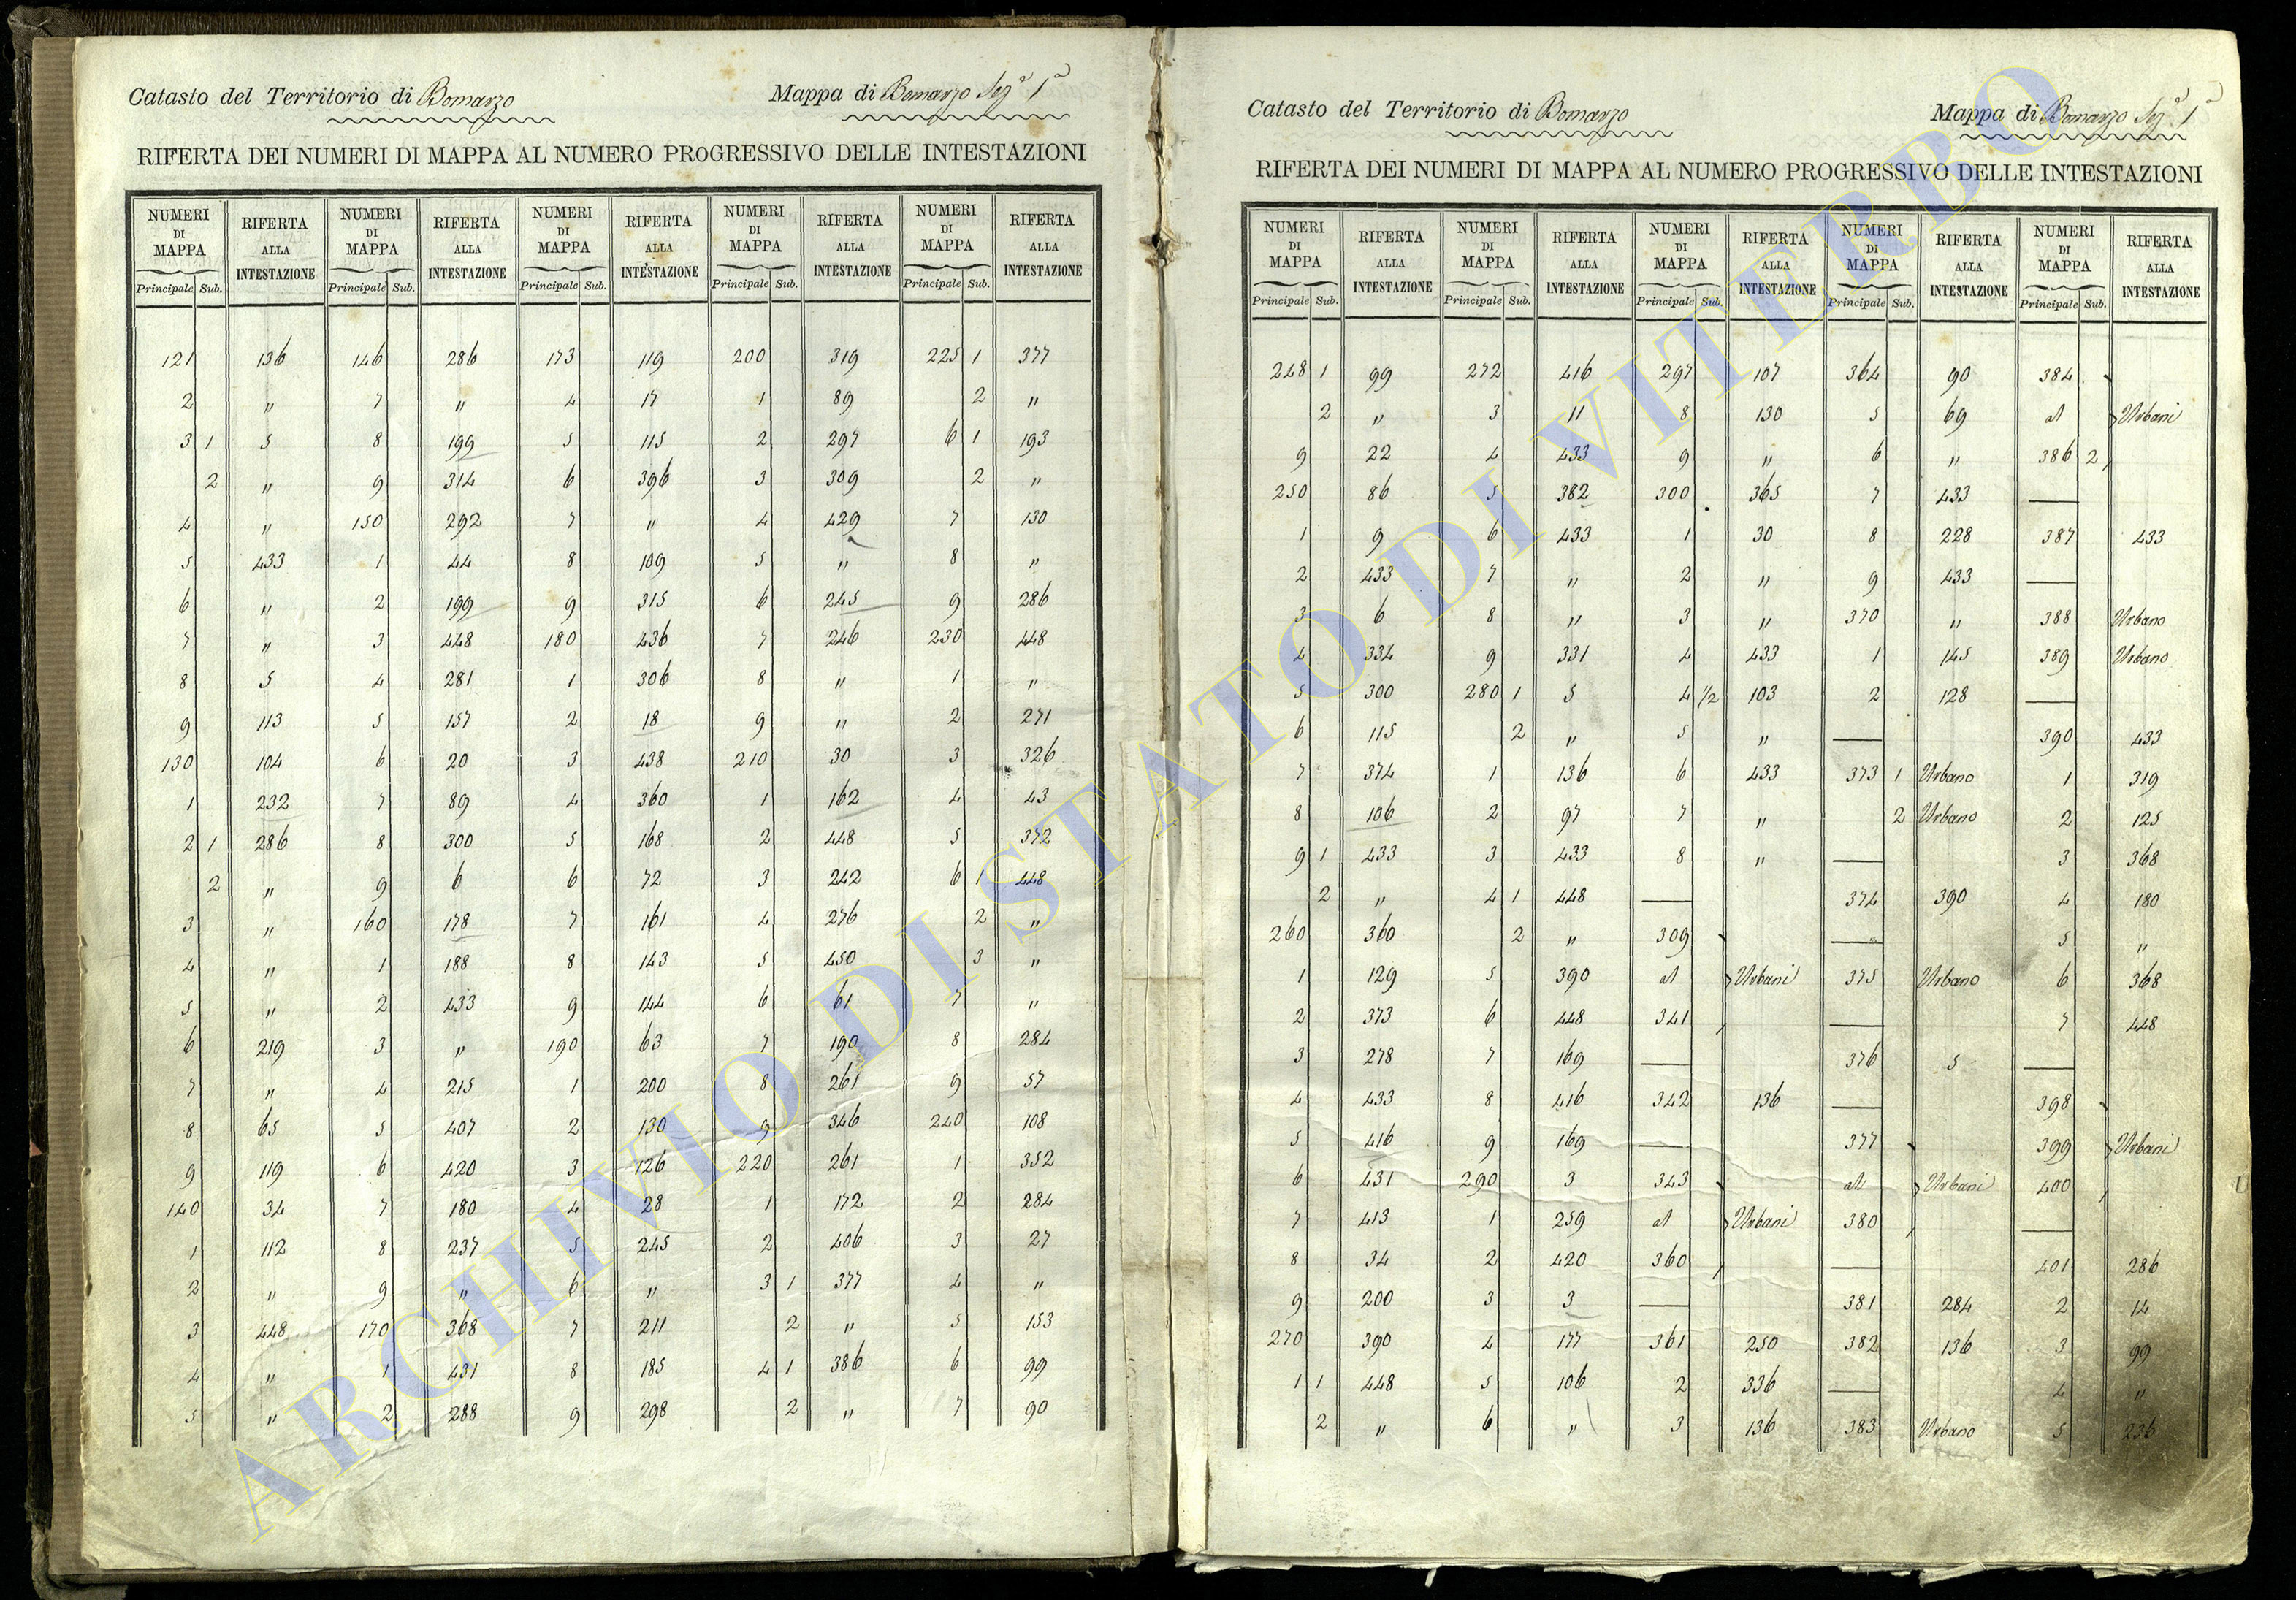 Catasto del Territorio di Bomarzo Mappa di Bomarzo Sez.ª 1ª
RIFERTA DEI NUMERI DI MAPPA AL NUMERO PROGRESSIVO DELLE INTESTAZIONI
NUMERI DI MAPPA RIFERTA ALLA INTESTAZIONE NUMERI DI MAPPA RIFERTA ALLA INTESTAZIONE NUMERI DI MAPPA RIFERTA ALLA INTESTAZIONE NUMERI DI MAPPA RIFERTA ALLA INTESTAZIONE NUMERI DI MAPPA RIFERTA ALLA INTESTAZIONE
Principale Sub. Principale Sub. Principale Sub. Principale Sub. Principale Sub.
121 136 146 286 173 119 200 319 225 1 377
2 " 7 " 4 17 1 89 2 "
3 1 5 8 199 5 115 2 297 6 1 193
2 " 9 314 6 396 3 309 2 "
4 " 150 292 7 " 4 429 7 130
5 433 1 44 8 109 5 " 8 "
6 " 2 199 9 315 6 245 9 286
7 " 3 448 180 436 7 246 230 448
8 5 4 281 1 306 8 " 1 "
9 113 5 157 2 18 9 " 2 271
130 104 6 20 3 438 210 30 3 326
1 232 7 89 4 360 1 162 4 43
2 1 286 8 300 5 168 2 448 5 372
2 " 9 6 6 72 3 242 6 1 448
3 " 160 178 7 161 4 276 2 "
4 " 1 188 8 143 5 450 3 "
5 " 2 433 9 144 6 61 7 "
6 219 3 " 190 63 7 190 8 284
7 " 4 215 1 200 8 261 9 57
8 65 5 407 2 130 9 346 240 108
9 119 6 420 3 126 220 261 1 352
140 34 7 180 4 28 1 172 2 284
1 112 8 237 5 245 2 406 3 27
2 " 9 " 6 " 3 1 377 4 "
3 448 170 368 7 211 2 " 5 153
4 " 1 431 8 185 4 1 386 6 99
5 " 2 288 9 298 2 " 7 90
Catasto del Territorio di Bomarzo Mappa di Bomarzo Sez.ª 1ª
RIFERTA DEI NUMERI DI MAPPA AL NUMERO PROGRESSIVO DELLE INTESTAZIONI
NUMERI DI MAPPA RIFERTA ALLA INTESTAZIONE NUMERI DI MAPPA RIFERTA ALLA INTESTAZIONE NUMERI DI MAPPA RIFERTA ALLA INTESTAZIONE NUMERI DI MAPPA RIFERTA ALLA INTESTAZIONE NUMERI DI MAPPA RIFERTA ALLA INTESTAZIONE
Principale Sub. Principale Sub. Principale Sub. Principale Sub. Principale Sub.
248 1 99 272 416 297 107 364 90 384
2 " 3 11 8 130 5 69 al Urbani
9 22 4 433 9 " 6 " 386 2
250 86 5 382 300 365 7 433 —
1 9 6 433 1 30 8 228 387 433
2 433 7 " 2 " 9 433 —
3 6 8 " 3 " 370 " 388 Urbano
4 334 9 331 4 433 1 145 389 Urbano
5 300 280 1 5 4 1/2 103 2 128 —
6 115 2 " 5 " — 390 433
7 374 1 136 6 433 373 1 Urbano 1 319
8 106 2 97 7 " 2 Urbano 2 125
9 1 433 3 433 8 " — 3 368
2 " 4 1 448 — 374 390 4 180
260 360 2 " 309 — 5 "
1 129 5 390 al Urbani 375 Urbano 6 368
2 373 6 448 341 — 7 448
3 278 7 169 — 376 5 —
4 433 8 416 342 136 — 398
5 416 9 169 — 377 399 Urbani
6 431 290 3 343 al Urbani 400
7 413 1 259 al Urbani 380 —
8 34 2 420 360 — 401 286
9 200 3 3 — 381 284 2 14
270 390 4 177 361 250 382 136 3 99
1 1 448 5 106 2 336 — 4 "
2 " 6 " 3 136 383 Urbano 5 236
ARCHIVIO DI STATO DI VITERBO